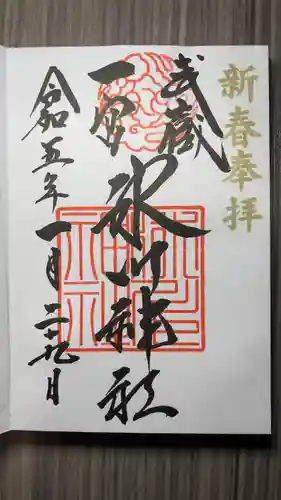 新春奉拝
武蔵
一宮
氷川神社
令和五年一月二十九日